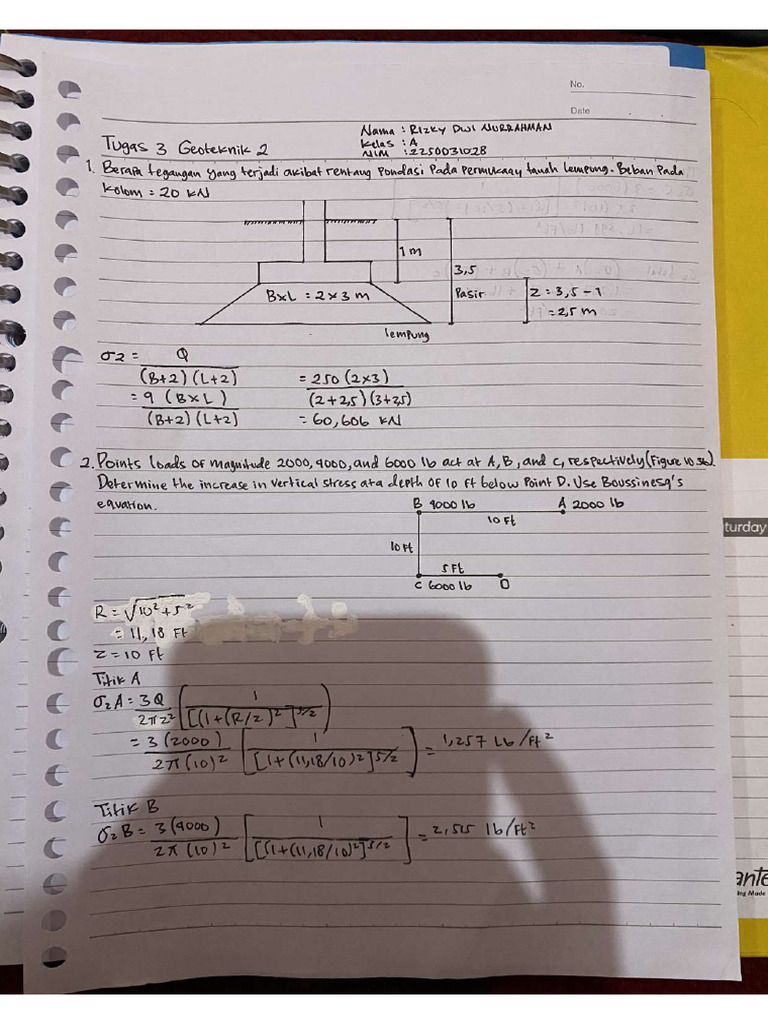 No.
Date
Nama : RIZKY DWI NURRAHMAN
Kelas : A
NIM : 2250031028
Tugas 3 Geoteknik 2
1. Berapa tegangan yang terjadi akibat rentang Pondasi Pada Permukaan tanah lempung. Beban Pada
Kolom = 20 KN
1 m
3,5
BxL = 2 x 3 m
Pasir
Z = 3,5 - 1
= 2,5 m
lempung
σz = Q / (B+z) (L+z)
= 9 (BxL) / (B+z) (L+z)
= 250 (2x3) / (2+2,5) (3+2,5)
= 60,606 KN
2. Points loads of magnitude 2000, 4000, and 6000 lb act at A, B, and C, respectively (Figure 10.36)
Determine the increase in vertical stress at a depth of 10 ft below Point D. Use Boussinesq's
equation.
B 4000 lb
A 2000 lb
10 Ft
10 Ft
5 Ft
C 6000 lb
D
R = √10² + 5²
= 11,18 Ft
Z = 10 Ft
Titik A
σzA = 3Q / 2πz² [ 1 / [(1+(R/z)²]^5/2 ]
= 3 (2000) / 2π (10)² [ 1 / [1+(11,18/10)²]^5/2 ] = 1,257 Lb/Ft²
Titik B
σzB = 3 (4000) / 2π (10)² [ 1 / [[1+(11,18/10)²]^5/2 ] = 2,515 lb/Ft²
turday